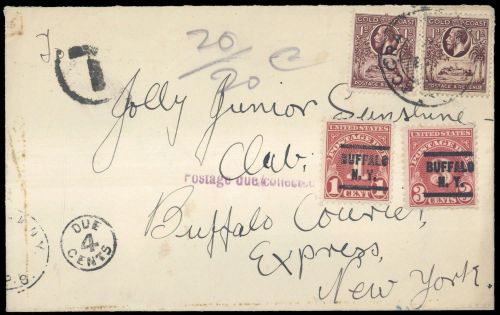 GOLD COAST GOLD COAST
1D 1D
POSTAGE & REVENUE POSTAGE & REVENUE
ACCRA
T
20
20 c
Jolly Junior Sunshine
Club,
UNITED STATES UNITED STATES
POSTAGE DUE POSTAGE DUE
BUFFALO BUFFALO
N. Y. N. Y.
1 CENT 1 3 CENTS 3
Postage due collected
Buffalo Courier,
Express,
New York.
DUE
4
CENTS